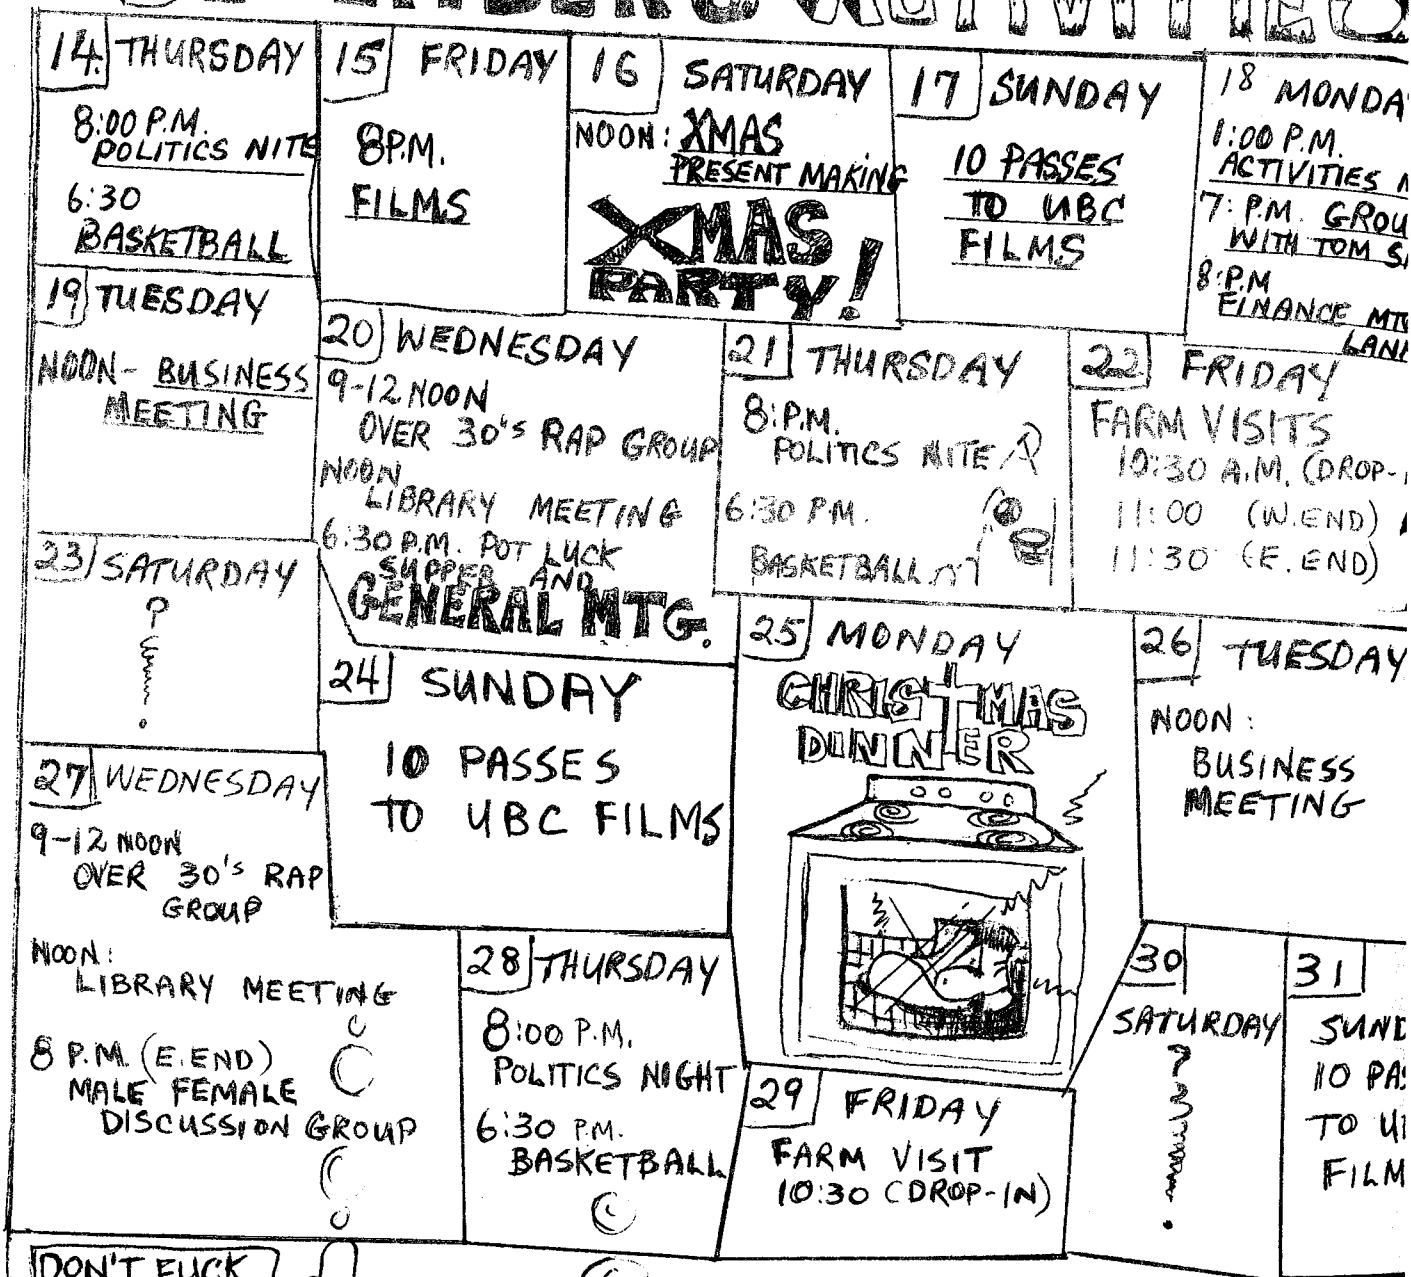 ACTIVITIES
14. THURSDAY
8:00 P.M.
POLITICS NITE
6:30
BASKETBALL
15 FRIDAY
8P.M.
FILMS
16 SATURDAY
NOON: XMAS
PRESENT MAKING
XMAS
PARTY!
17 SUNDAY
10 PASSES
TO UBC
FILMS
18 MONDA
1:00 P.M.
ACTIVITIES
7: P.M. GROU
WITH TOM
8:P.M
FINANCE MTG
19 TUESDAY
NOON- BUSINESS
MEETING
20 WEDNESDAY
9-12 NOON
OVER 30's RAP GROUP
NOON
LIBRARY MEETING
6:30 P.M. POT LUCK
SUPPER AND
GENERAL MTG.
21 THURSDAY
8:P.M.
POLITICS NITE
6:30 P.M.
BASKETBALL
22 FRIDAY
FARM VISITS
10:30 A.M. (DROP-
11:00 (W.END)
11:30 (E.END)
23 SATURDAY
?
24 SUNDAY
10 PASSES
TO UBC FILMS
25 MONDAY
CHRISTMAS
DINNER
26 TUESDAY
NOON:
BUSINESS
MEETING
27 WEDNESDAY
9-12 NOON
OVER 30's RAP
GROUP
NOON:
LIBRARY MEETING
8 P.M. (E.END)
MALE FEMALE
DISCUSSION GROUP
28 THURSDAY
8:00 P.M.
POLITICS NIGHT
6:30 P.M.
BASKETBALL
29 FRIDAY
FARM VISIT
10:30 (DROP-IN)
30
SATURDAY
?
31
SUND
10 PAS
TO U
FILM
DON'T FUCK